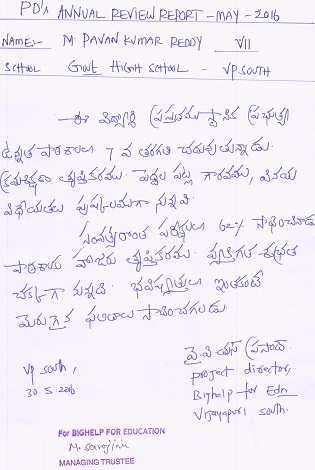 PD's ANNUAL REVIEW REPORT - MAY - 2016
NAME:- M. PAVAN KUMAR REDDY VII
SCHOOL Govt HIGH SCHOOL - VP SOUTH
ఈ విద్యార్థి ప్రస్తుతము స్థానిక ప్రభుత్వ
ఉన్నత పాఠశాలలో 7 వ తరగతి చదువుతున్నాడు.
క్రమశిక్షణ తృప్తికరము. పెద్దల పట్ల గౌరవము, వినయ
విధేయతలు పుష్కలముగా ఉన్నవి.
సంవత్సరాంత పరీక్షలలో 62% సాధించినాడు.
పాఠశాల హాజరు తృప్తికరము. వ్యక్తిగత శుభ్రత
చక్కగా ఉన్నది. భవిష్యత్తులో ఇంతకంటే
మెరుగైన ఫలితాలు సాధించగలడు.
VP South,
30.5.2016.
వై.వి.యస్ ప్రసాద్.
project director,
Bighelp for Edn
Vijayapuri South.
For BIGHELP FOR EDUCATION
M. Sarojini
MANAGING TRUSTEE